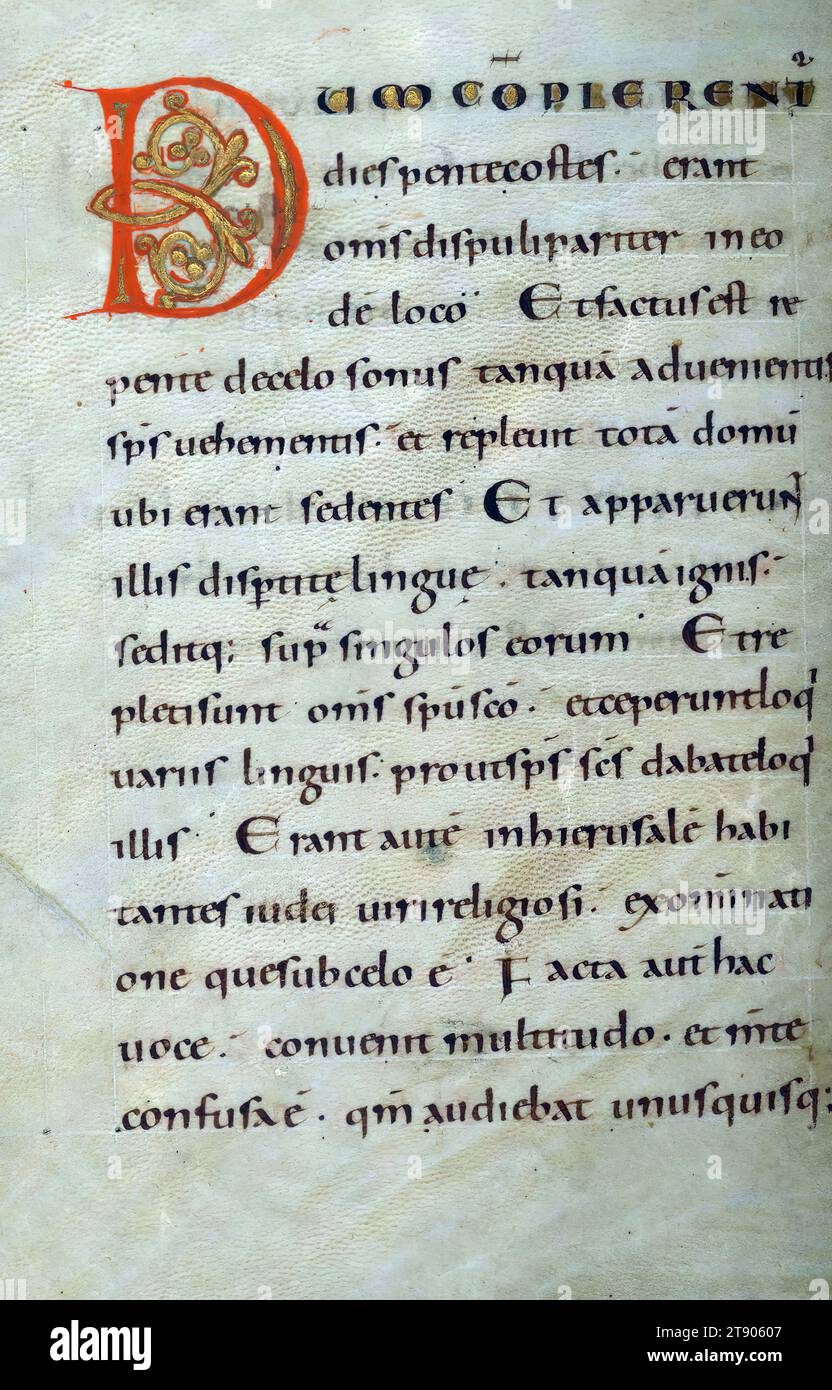 2
DUM CŌPLERENT
dies pentecostes. erant
om̄s discipuli pariter in eo
dē loco. Et factus est re
pente de celo sonus tanquā aduenientis
sp̄s uehementis. et repleuit totā domū
ubi erant sedentes. Et apparuerunt
illis disp̄titę linguę. tanquā ignis.
seditq; sup̄ singulos eorum. Et re
pleti sunt om̄s sp̄u sc̄o. et ceperunt loq
uariis linguis. prout sp̄s sc̄s dabat eloq
illis. Erant autē in hierusalē habi
tantes iudei uiri religiosi. ex om̄i nati
one que sub celo ē. Facta aut̄ hac
uoce. conuenit multitudo. et m̄te
confusa ē. qm̄ audiebat unusquisq;
alamy
Image ID: 2T90607
www.alamy.com